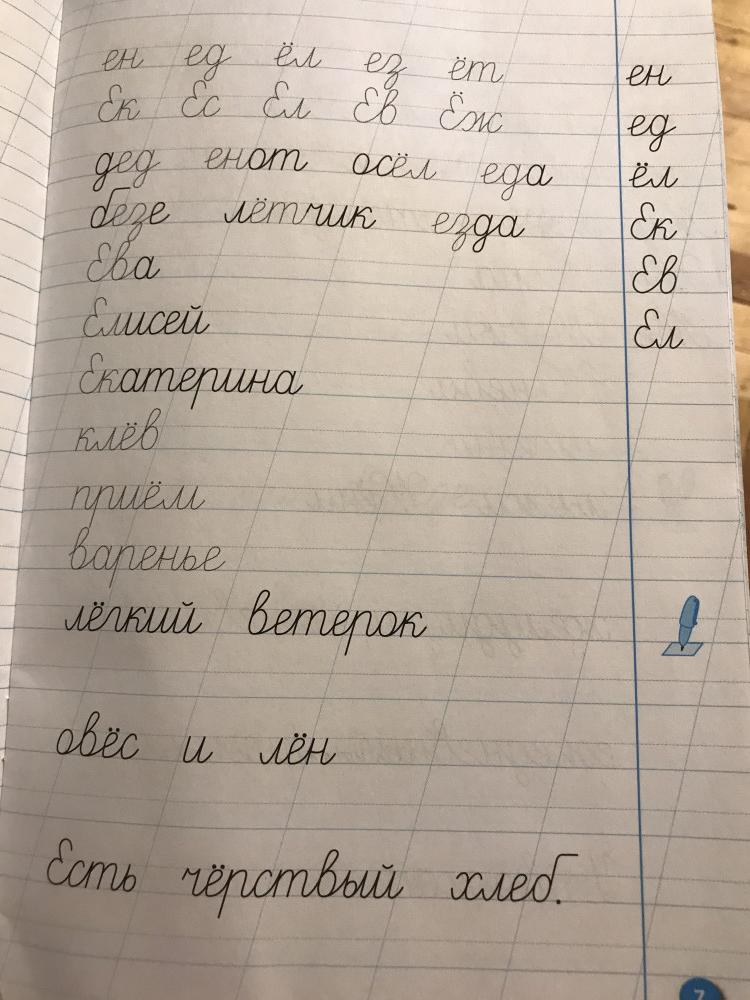 ен ед ёл ез ёт
Ек Ес Ел Ев Ёж
дед енот осёл еда
безе лётчик езда
Ева
Елисей
Екатерина
клёв
приём
варенье
лёгкий ветерок
овёс и лён
Есть чёрствый хлеб.
ен
ед
ёл
Ек
Ев
Ел
7